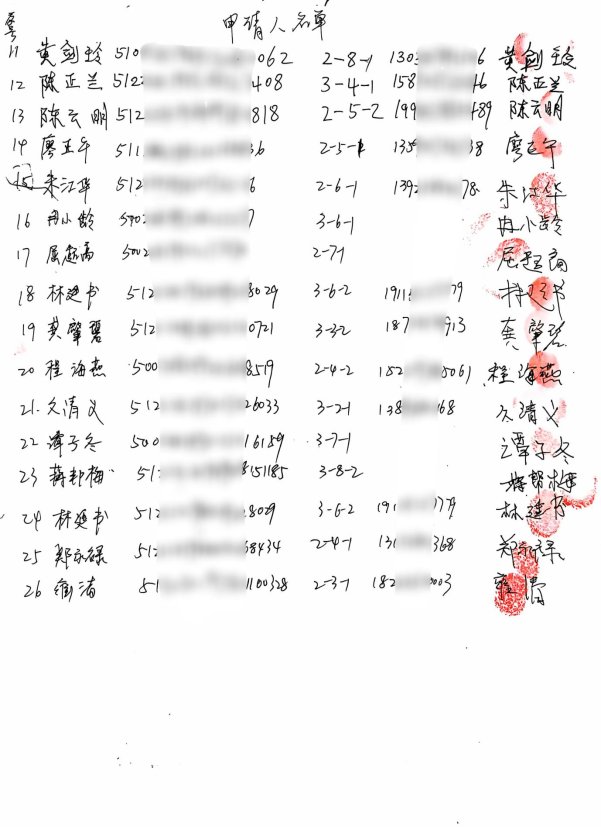 申请人名单
11 黄剑玲 510 062 2-8-1 130 6 黄剑玲
12 陈正兰 512 408 3-4-1 158 16 陈正兰
13 陈云明 512 818 2-5-2 199 489 陈云明
14 廖正午 511 36 2-5-1 135 38 廖正午
15 朱江华 512 6 2-6-1 139 78 朱江华
16 冉小龄 500 7 3-6-1 冉小龄
17 屈超商 5002 2-7-1 屈超商
18 林建书 512 8029 3-6-2 191 79 林建书
19 龚肇碧 512 0721 3-3-2 187 913 龚肇碧
20 程海燕 500 8519 2-4-2 182 5061 程海燕
21. 久清义 512 26033 3-2-1 138 168 久清义
22 谭子冬 500 16189 3-7-1 谭子冬
23 蒋邦梅 51 151185 3-8-2 蒋邦梅
24 林建书 512 8029 3-6-2 191 779 林建书
25 郑永禄 512 68434 2-4-1 131 368 郑永禄
26 51 1100328 2-3-1 182 0003